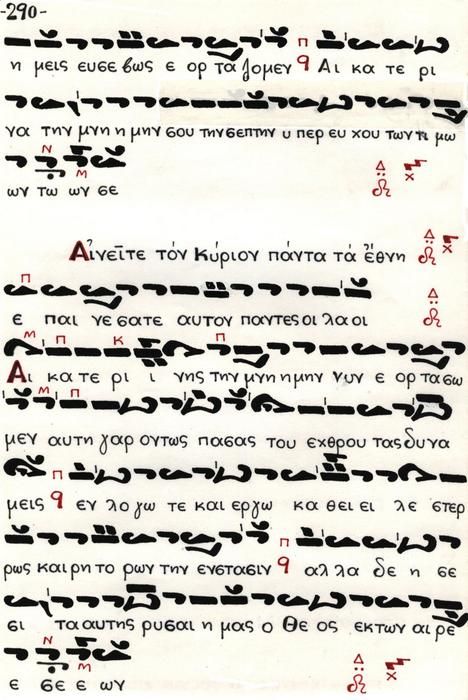 -290-
η μεις ευσε βως ε ορ τα ζομεν Αι κα τε ρι
να την μνη η μην σου την σεπτην υ περ ευ χου των τι μω
ων τω ων σε
Αἰνεῖτε τόν Κύριον πάντα τά ἔθνη
ε παι νε σατε αυτον παντες οι λα οι
Αι κα τε ρι ι νης την μνη ημην νυν ε ορ τα σω
μεν αυτη γαρ οντως πασας του εχθρου τας δυνα
μεις εν λο γω τε και εργω κα θει ει λε στερ
ρως και ρη το ρων την ενστασιν αλ λα δε η σε
σι τα αυτης ρυσαι η μας ο Θε ος εκ των αι ρε
ε σε ε ων